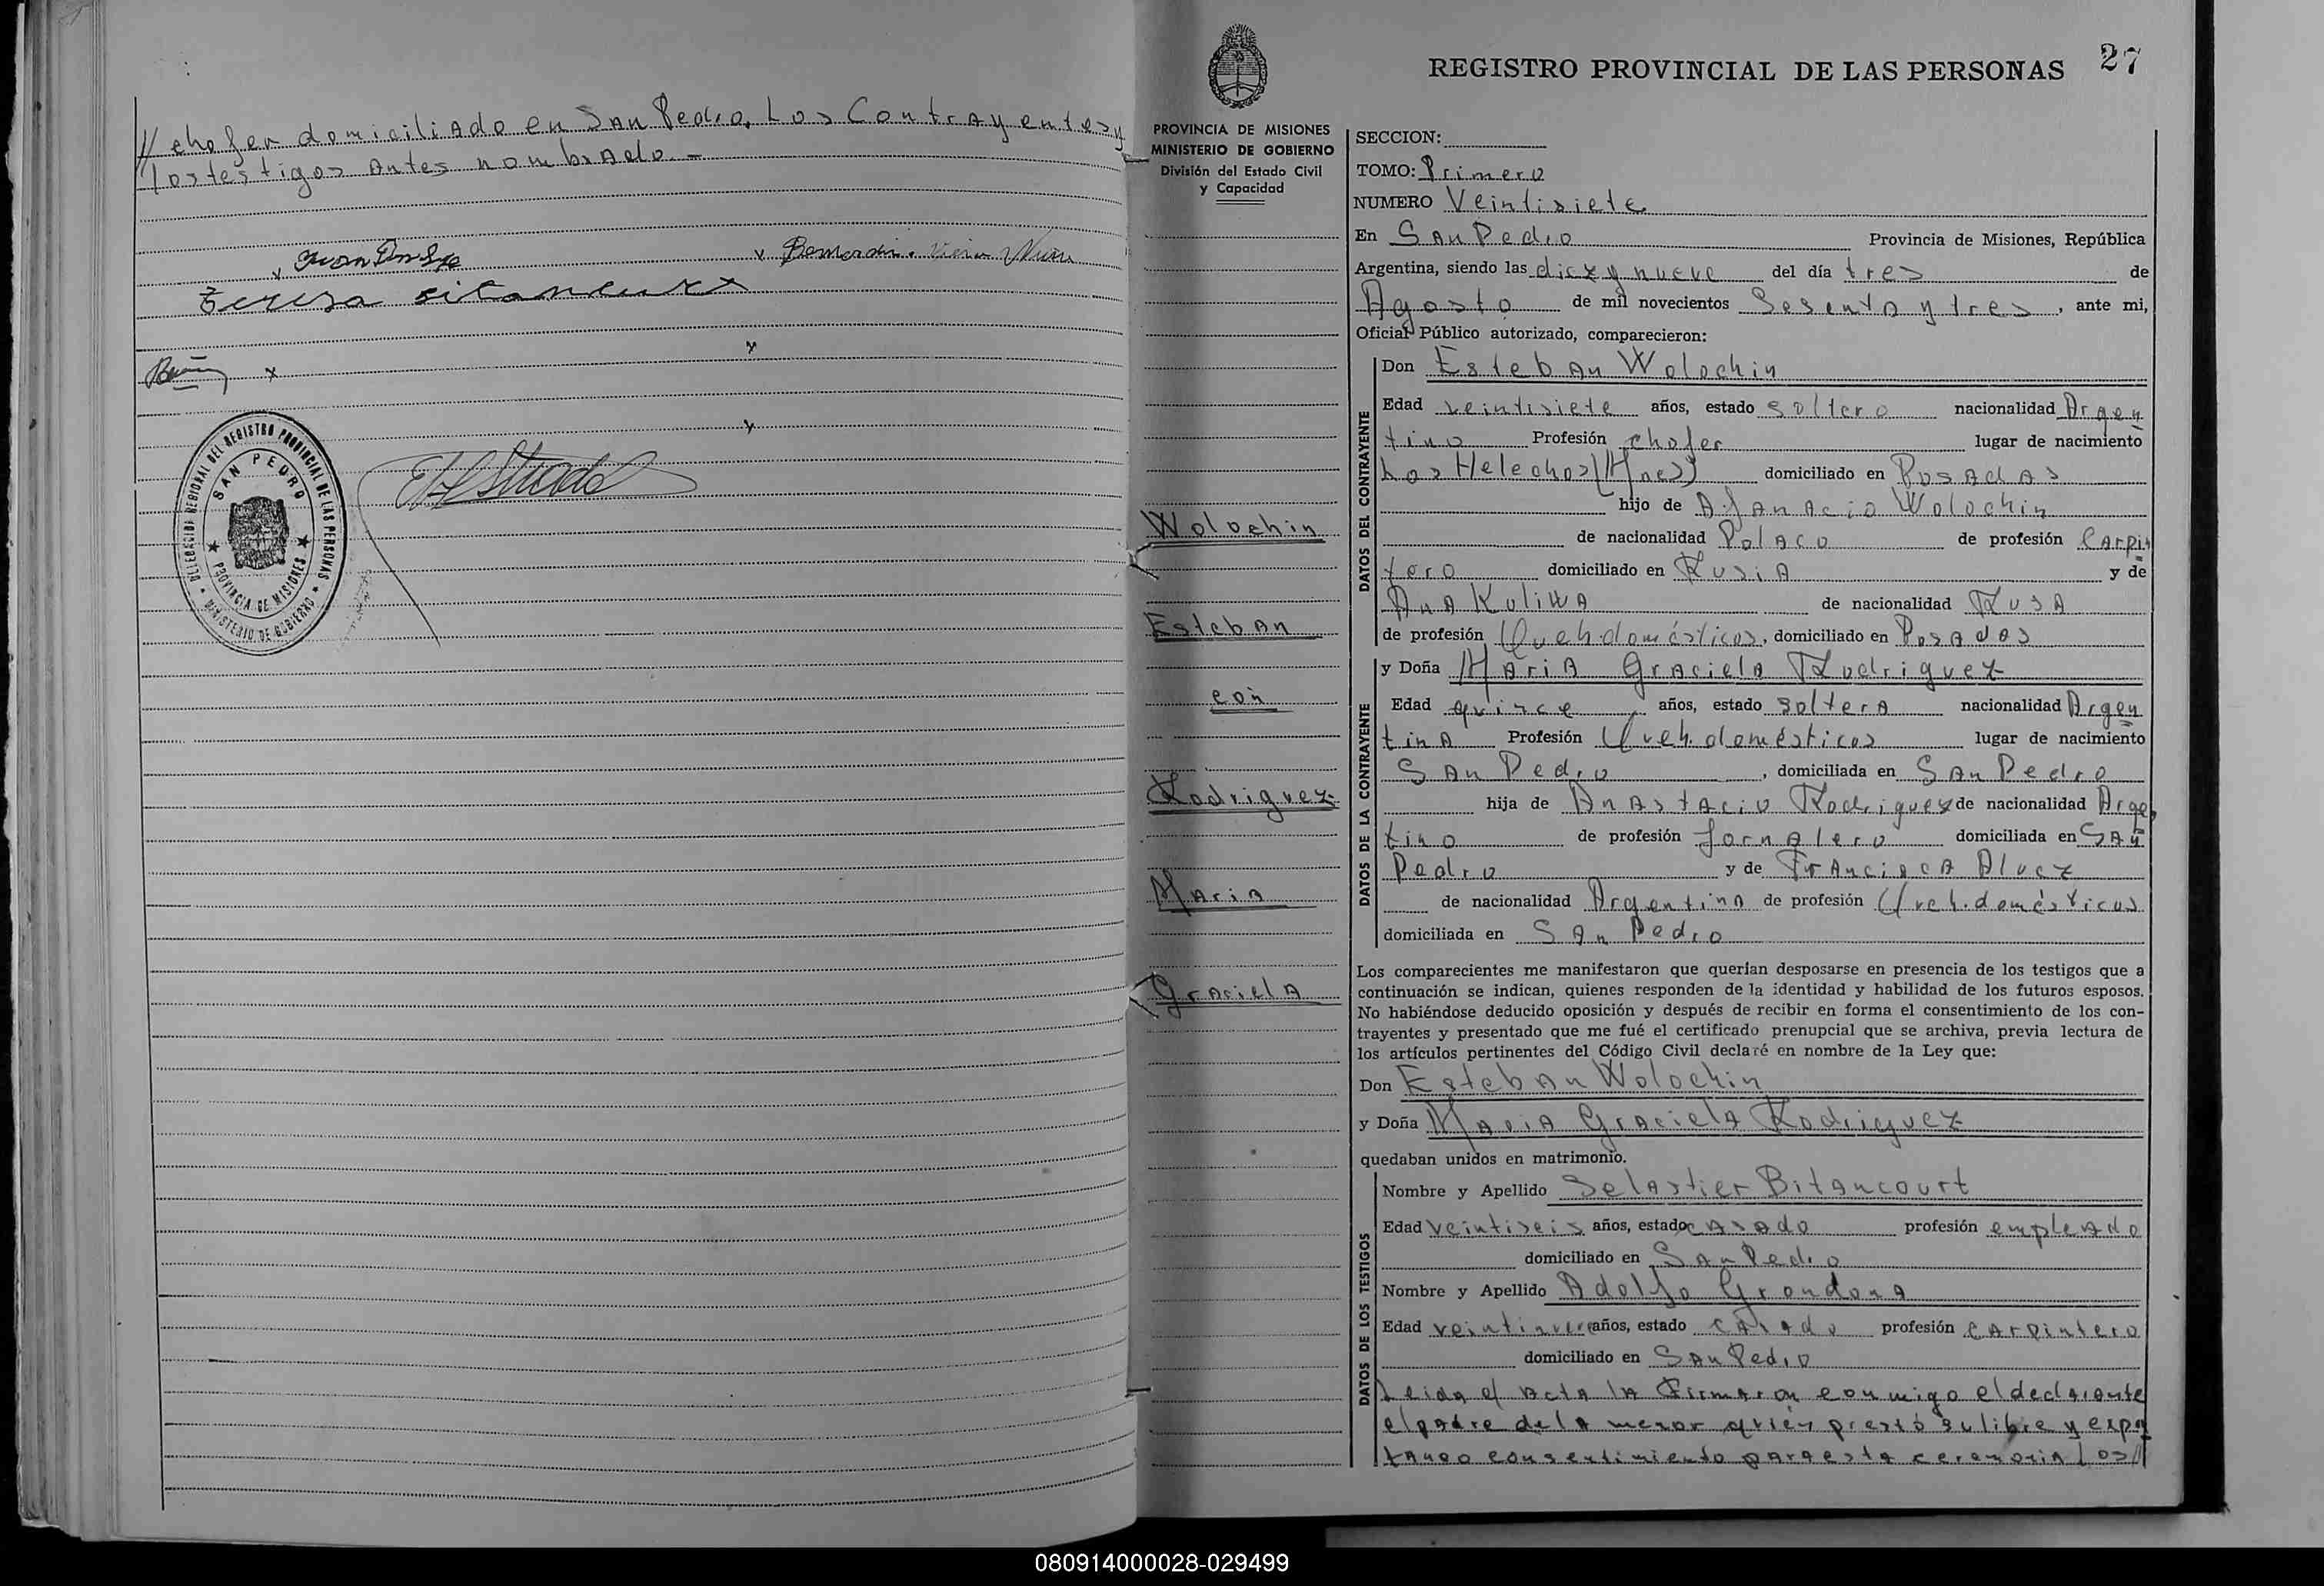 // chofer domiciliado en San Pedro. Los Contrayentes y
los testigos antes nombrado.-
Teresa
DELEGACION REGIONAL DEL REGISTRO PROVINCIAL DE LAS PERSONAS
SAN PEDRO
PROVINCIA DE MISIONES
MINISTERIO DE GOBIERNO
REGISTRO PROVINCIAL DE LAS PERSONAS 27
PROVINCIA DE MISIONES
MINISTERIO DE GOBIERNO
División del Estado Civil
y Capacidad
Wolochin
Esteban
con
Rodriguez
Maria
Graciela
SECCION:
TOMO: Primero
NUMERO Veintisiete
En San Pedro Provincia de Misiones, República
Argentina, siendo las diez y nueve del día tres de
Agosto de mil novecientos Sesenta y tres, ante mi,
Oficial Público autorizado, comparecieron:
DATOS DEL CONTRAYENTE
Don Esteban Wolochin
Edad veintisiete años, estado soltero nacionalidad Argen
tino Profesión chofer lugar de nacimiento
Los Helechos (Mnes) domiciliado en Posadas
hijo de Afanacio Wolochin
de nacionalidad Polaco de profesión Carpin
tero domiciliado en Rusia y de
Ana Kuliwa de nacionalidad Rusa
de profesión Queh. domésticos, domiciliado en Posadas
DATOS DE LA CONTRAYENTE
y Doña Maria Graciela Rodriguez
Edad quince años, estado soltera nacionalidad Argen
tina Profesión Queh. domésticos lugar de nacimiento
San Pedro, domiciliada en San Pedro
hija de Anastacio Rodriguez de nacionalidad Argen
tino de profesión Jornalero domiciliada en San
Pedro y de Francisca Alvez
de nacionalidad Argentina de profesión Queh. domésticos
domiciliada en San Pedro
Los comparecientes me manifestaron que querían desposarse en presencia de los testigos que a
continuación se indican, quienes responden de la identidad y habilidad de los futuros esposos.
No habiéndose deducido oposición y después de recibir en forma el consentimiento de los con-
trayentes y presentado que me fué el certificado prenupcial que se archiva, previa lectura de
los artículos pertinentes del Código Civil declaré en nombre de la Ley que:
Don Esteban Wolochin
y Doña Maria Graciela Rodriguez
quedaban unidos en matrimonio.
DATOS DE LOS TESTIGOS
Nombre y Apellido Selastier Bitancourt
Edad veintiseis años, estado casado profesión empleado
domiciliado en San Pedro
Nombre y Apellido Adolfo Grondona
Edad años, estado casado profesión carpintero
domiciliado en San Pedro
Leida el acta la firmaron conmigo el declarante
el padre de la menor quién prestó su libre y espon
taneo consentimiento para esta ceremonia Los//
080914000028-029499